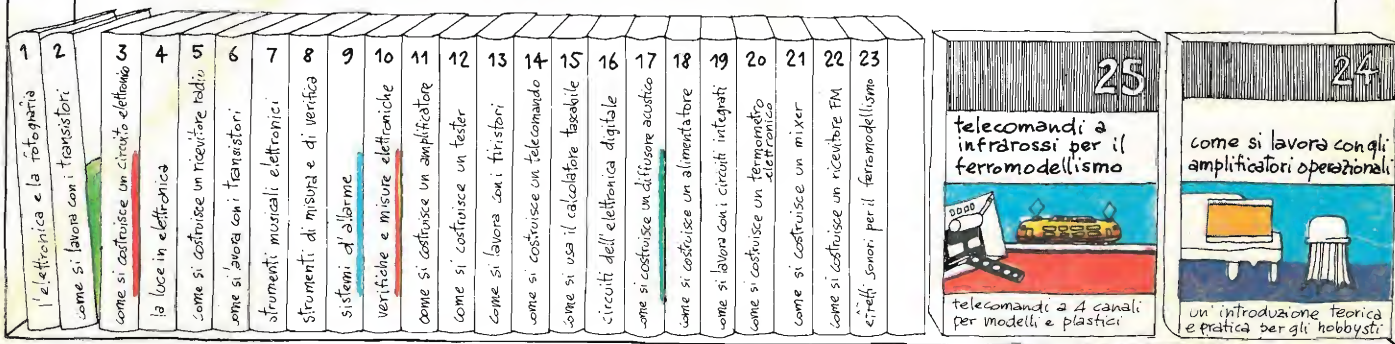 1 l'elettronica e la fotografia
2 come si lavora con i transistori
3 come si costruisce un circuito elettronico
4 la luce in elettronica
5 come si costruisce un ricevitore radio
6 come si lavora con i transistori
7 strumenti musicali elettronici
8 strumenti di misura e di verifica
9 sistemi d'allarme
10 verifiche e misure elettroniche
11 come si costruisce un amplificatore
12 come si costruisce un tester
13 come si lavora con i tiristori
14 come si costruisce un telecomando
15 come si usa il calcolatore tascabile
16 circuiti dell'elettronica digitale
17 come si costruisce un diffusore acustico
18 come si costruisce un alimentatore
19 come si lavora con i circuiti integrati
20 come si costruisce un termometro
elettronico
21 come si costruisce un mixer
22 come si costruisce un ricevitore FM
23 effetti sonori per il ferromodellismo
25
telecomandi a
infrarossi per il
ferromodellismo
telecomandi a 4 canali
per modelli e plastici
24
come si lavora con gli
amplificatori operazionali
un'introduzione teorica
e pratica per gli hobbysti